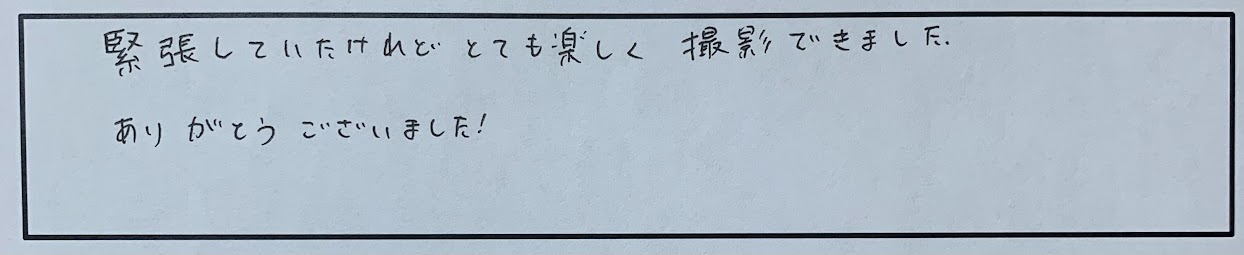 緊張していたけれどとても楽しく 撮影できました.
ありがとうございました!